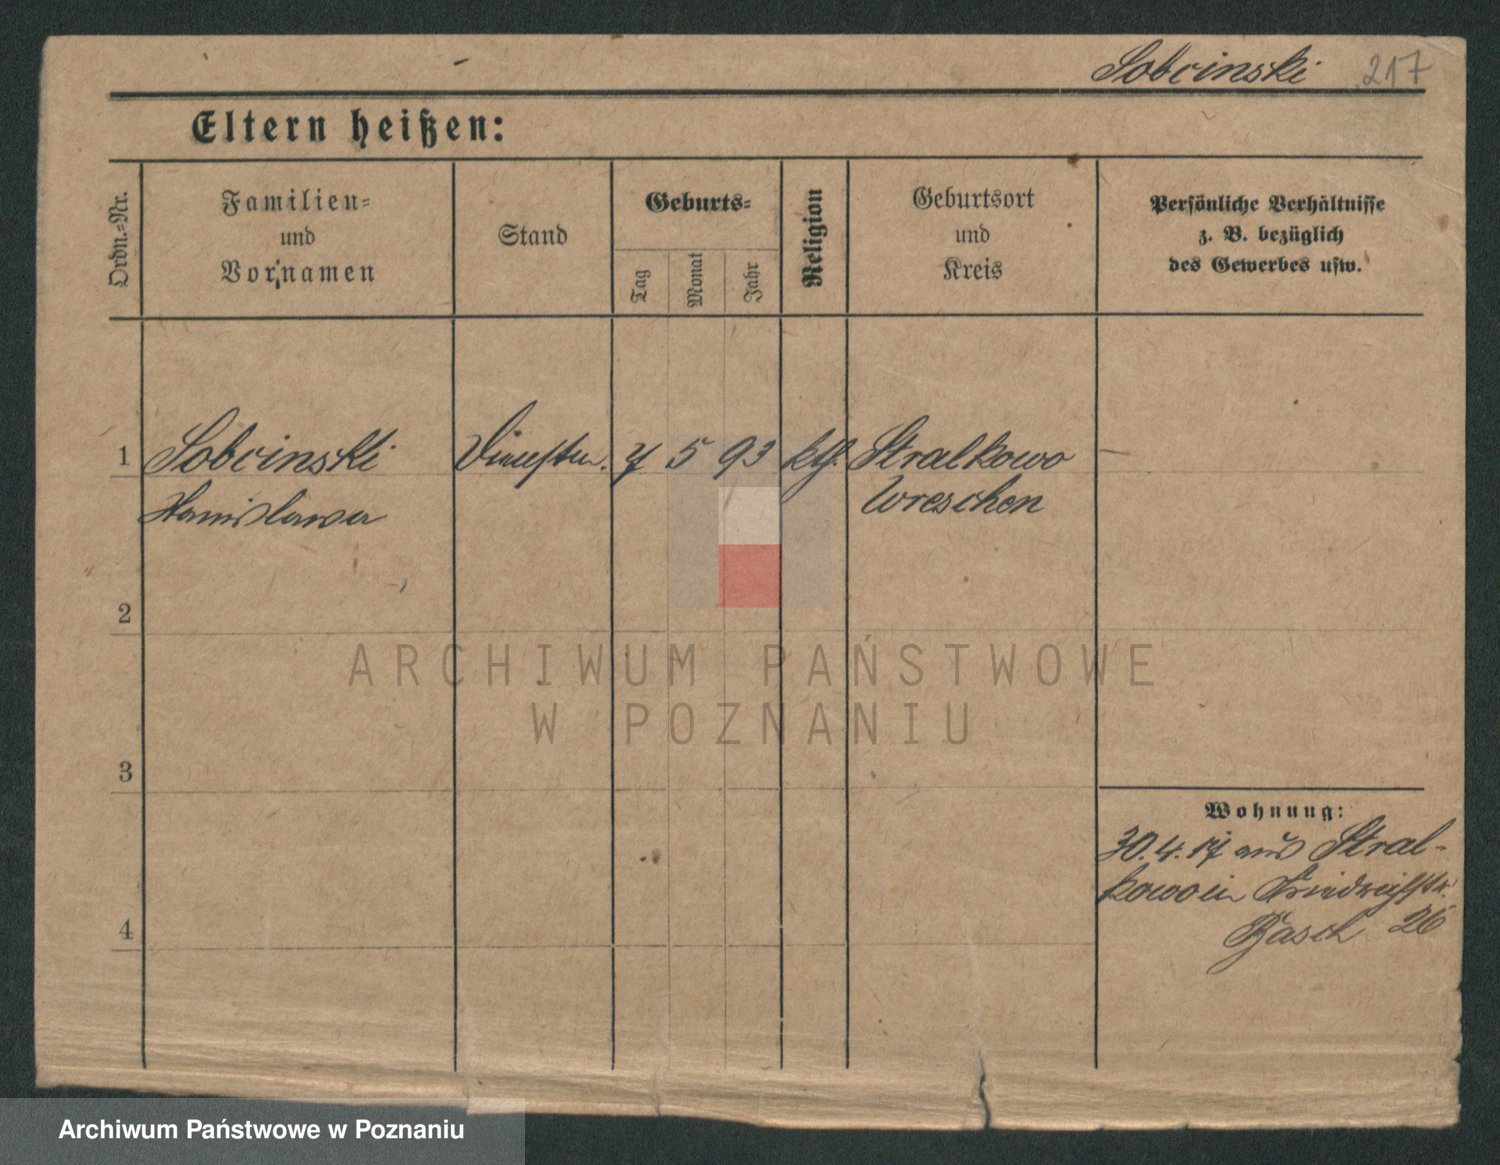 Sobcinski 217
Eltern heißen:
Ordn.-Nr.
Familien-
und
Vornamen
Stand
Geburts-
Tag
Monat
Jahr
Religion
Geburtsort
und
Kreis
Persönliche Verhältnisse
z. B. bezüglich
des Gewerbes usw.
1 Sobcinski 7 5 93 kth. Stralkowo
Stanislawa Wreschen
2
3
4
Wohnung:
30.4.17 aus Stral-
kowo in Friedrichstr.
26
ARCHIWUM PAŃSTWOWE
W POZNANIU
Archiwum Państwowe w Poznaniu